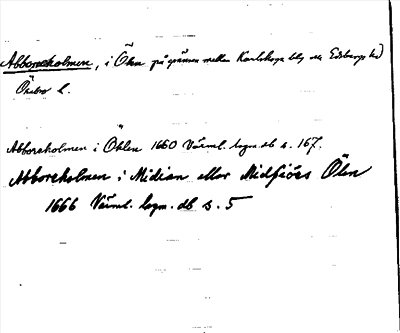 Abborreholmen, i Ölen på gränsen mellan Karlskoga bbg och Edsbergs hd
Örebro l.
Abboreholmen i Öhlen 1660 Värml. lagm. db s. 167.
Abboreholmen i Midian eller Midfiärs Ölen
1666 Värml. lagm. db s. 5